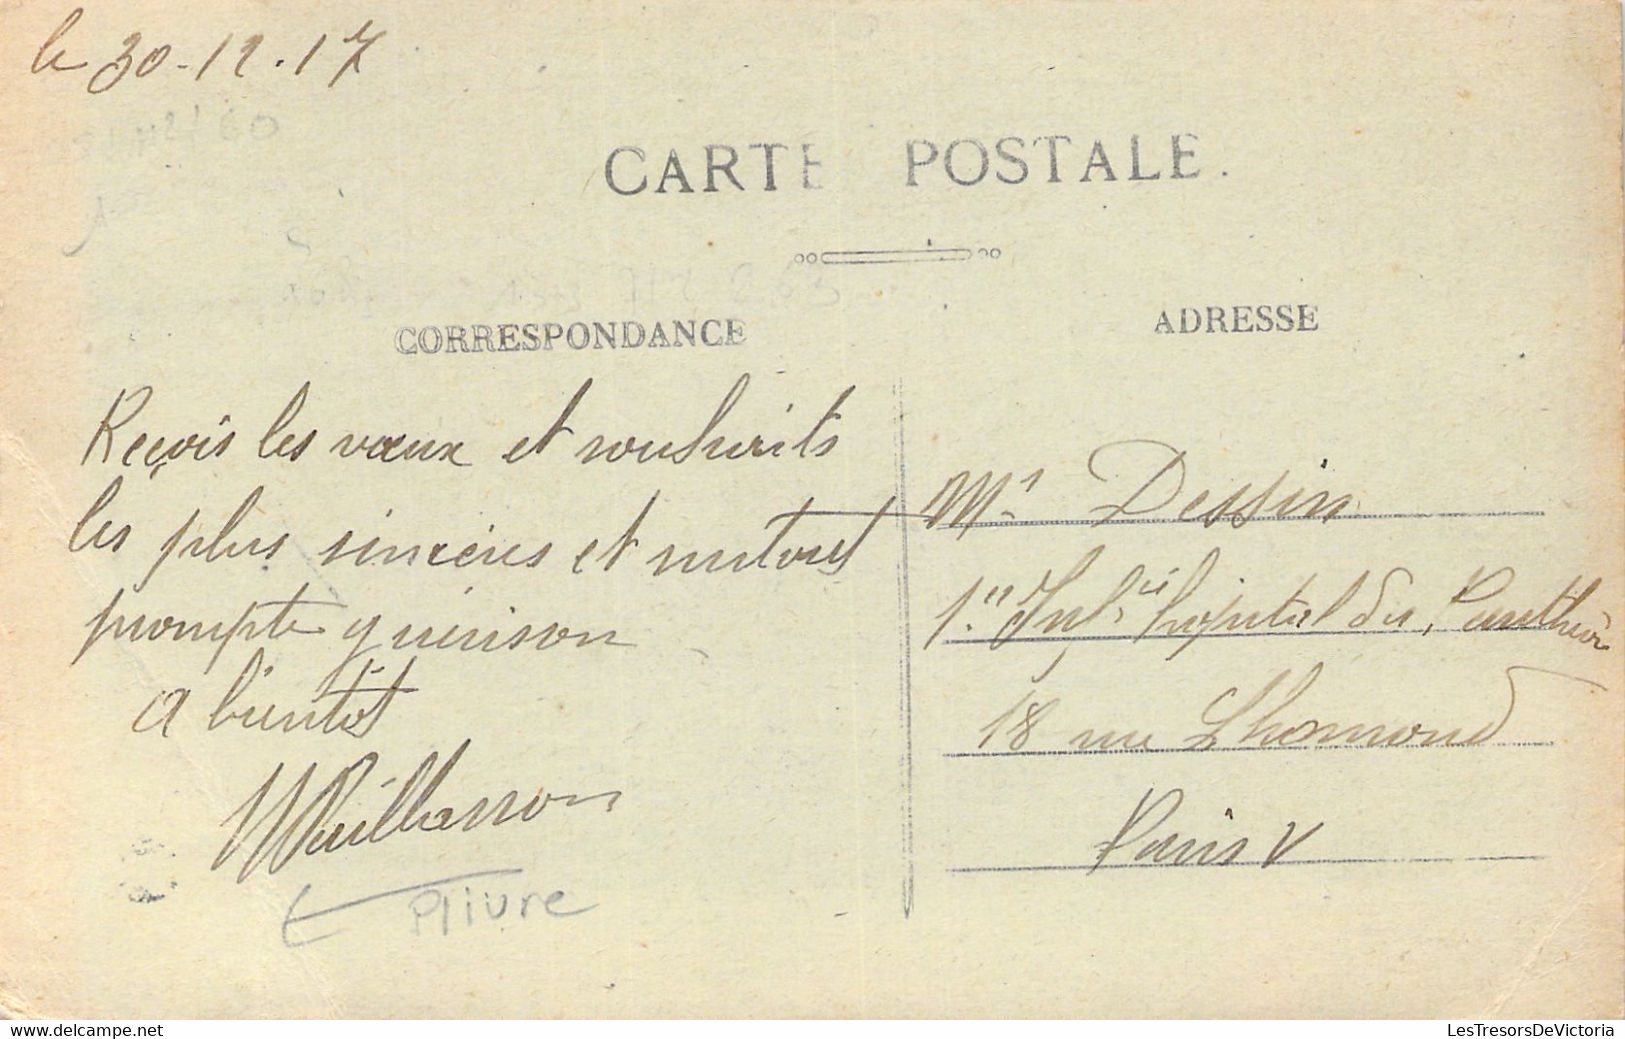 le 30-12.17
CARTE POSTALE.
CORRESPONDANCE
ADRESSE
Reçois les vœux et souhaits
les plus sincères et surtout
prompte guérison
a bientôt
Plivre
Mr Dessin
hôpital du Panthéon
18 rue Lhomond
Paris V
LesTresorsDeVictoria